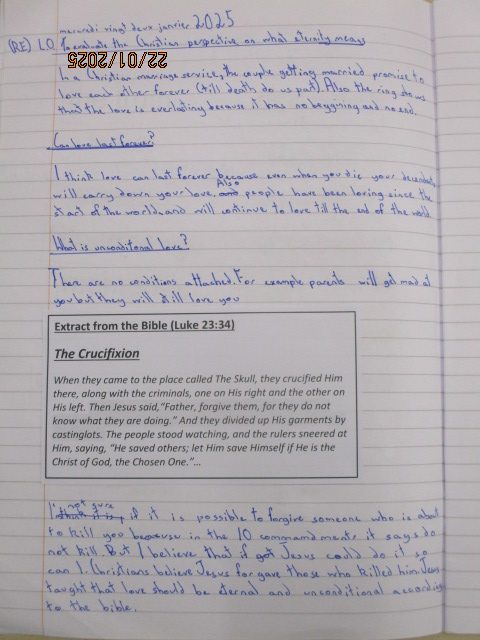 mercredi vingt deux janvier 2025
(RE) LO To evaluate the Christian perspective on what eternity means
22/01/2025
In a Christian marriage service, the couple getting married promise to
love each other forever (till death do us part). Also the ring shows
that the love is everlasting because it has no beggning and no end.
Can love last forever?
I think love can last forever because even when you die your decendants
will carry down your love. Also people have been loving since the
start of the world and will continue to love till the end of the world
What is unconditonal love?
There are no conditions attached. For example parents will get mad at
you but they will still love you
Extract from the Bible (Luke 23:34)
The Crucifixion
When they came to the place called The Skull, they crucified Him
there, along with the criminals, one on His right and the other on
His left. Then Jesus said,"Father, forgive them, for they do not
know what they are doing." And they divided up His garments by
castinglots. The people stood watching, and the rulers sneered at
Him, saying, "He saved others; let Him save Himself if He is the
Christ of God, the Chosen One."...
I'm not sure if it is possible to forgive someone who is about
to kill you because in the 10 commandments it says do
not kill. But I believe that if got Jesus could do it so
can I. Christians bdieve Jesus forgave those who killed him. Jesus
taught that love should be eternal and unconditional according
to the bible.